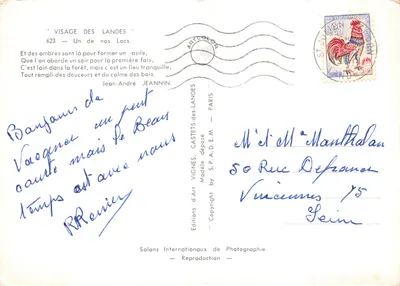 " VISAGE DES LANDES "
623 — Un de nos Lacs
Et des ombres sont là pour former un asile,
Que l'on aborde un soir pour la première fois,
C'est loin dans la forêt, mais c'est un lieu tranquille,
Tout rempli des douceurs et du calme des bois.
Jean-André JEANNIN
Bonjour de
Vacance un peut
courte mais le Beau
temps est avec nous
Editions d'Art VIGNES, CASTETS-des-LANDES
Modèle déposé
Copyright by S.P.A.D.E.M. - PARIS
M et M Manthalan
50 Rue Defrance
Vincennes 75
Seine
Salons Internationaux de Photographie
— Reproduction —